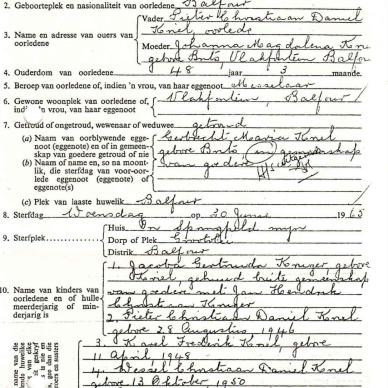 2. Geboorteplek en nasionaliteit van oorledene Balfour
3. Name en adresse van ouers van oorledene
Vader Pieter Christiaan Daniel
Knel, oorlede
Moeder Johanna Magdalena
gebore Brits, Vlakfontein, Balfour
4. Ouderdom van oorledene 48 jaar 3 maande.
5. Beroep van oorledene of, indien 'n vrou, van haar eggenoot Messelaar
6. Gewone woonplek van oorledene of, indien 'n vrou, van haar eggenoot Vlakfontein, Balfour
7. Getroud of ongetroud, wewenaar of weduwee getroud
(a) Naam van oorblywende eggenoot (eggenote) en of in gemeenskap van goedere getroud of nie
Maria Knel
gebore Brits in gemeenskap
van goedere
(b) Naam of name en, so na moontlik, die sterfdag van vooroorlede eggenoot (eggenote) of eggenote(s)
(c) Plek van laaste huwelik Balfour
8. Sterfdag Woensdag op 30 Junie 1965
9. Sterfplek
Huis In Springfield myn
Dorp of Plek Grootvlei
Distrik Balfour
10. Name van kinders van oorledene en of hulle meerderjarig of minderjarig is
1. Jacoba Gertruida Kruger, gebore
Knel, getroud buite gemeenskap
van goedere met Jan Hendrik
Christiaan Kruger
2. Pieter Christiaan Daniel Knel
gebore 28 Augustus, 1946
3. Karel Frederik Knel, gebore
11 April, 1948
4. Wessel Christiaan Daniel Knel
gebore 13 Oktober, 1950